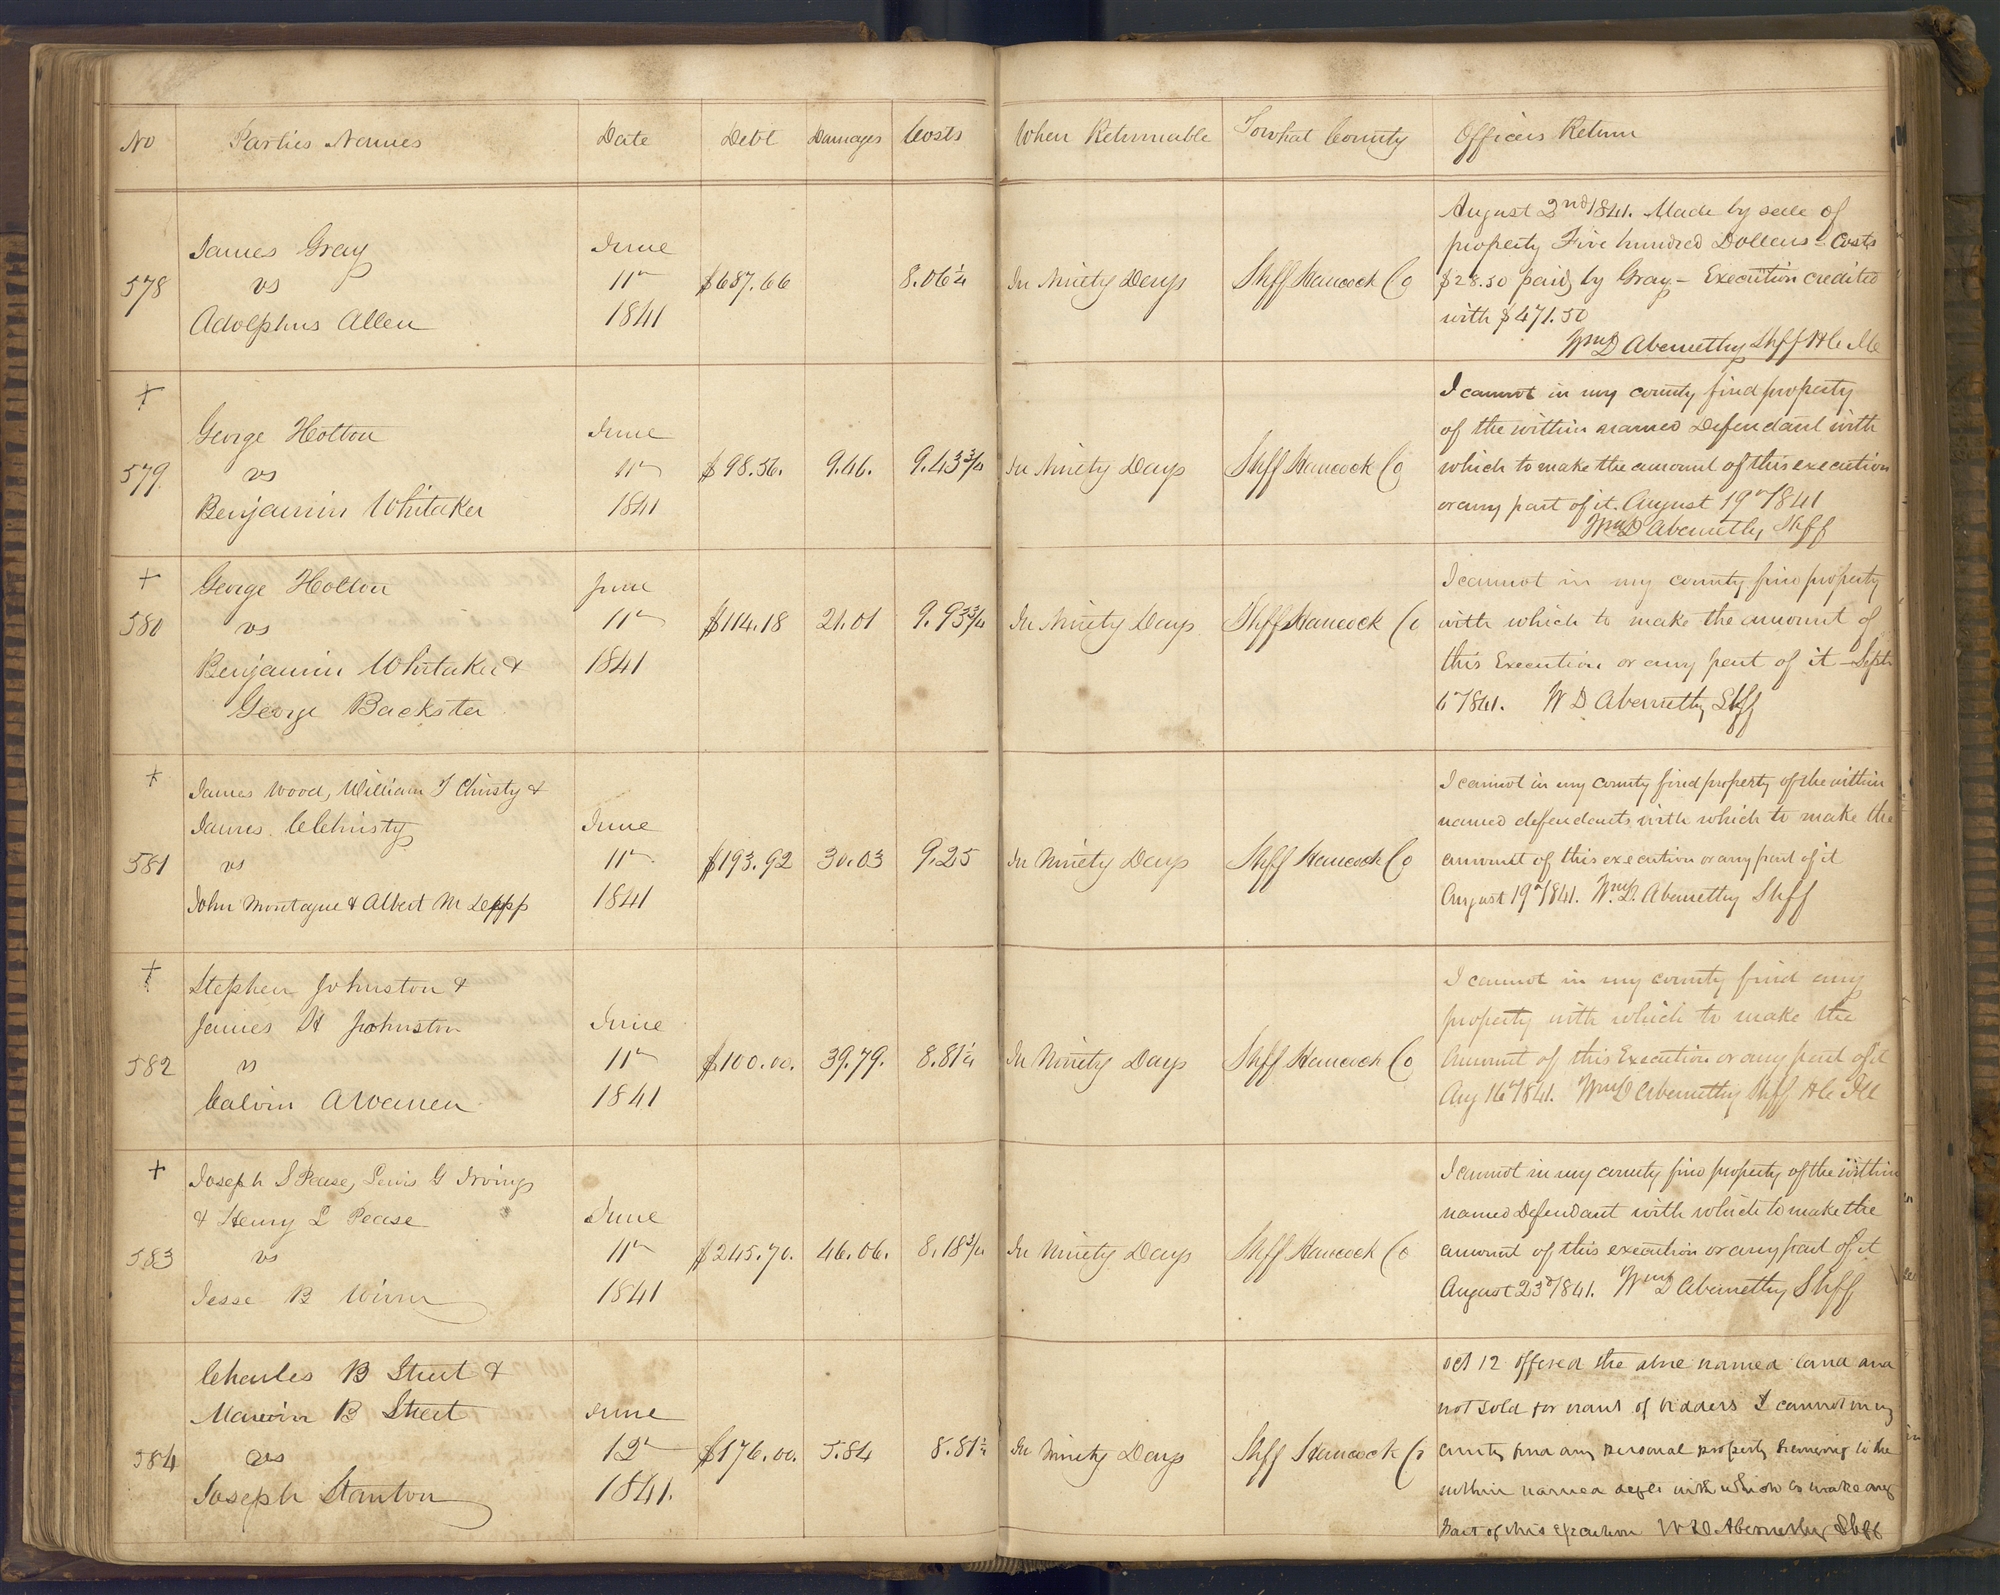 No Parties Names Date Debt Damages Costs When Returnable To what County Officers Return
James Gray
vs
Adolphus Allen
578
June
11th
1841
$687.66
8.06¼
In Ninety Days
Shff Hancock Co
August 2nd 1841. Made by sale of
property Five hundred Dollars - Costs
$28.50 paid by Gray - Execution credited
with $471.50
Wm D Abernethy Shff H C Ill
+
579
George Holton
vs
Benjamin Whitaker
June
11th
1841
$98.56.
9.46.
9.43¾
In Ninety Days
Shff Hancock Co
I cannot in my county find property
of the within named Defendant with
which to make the amount of this execution
or any part of it. August 19th 1841
Wm D Abernethy Shff
+
580
George Holton
vs
Benjamin Whitaker &
George Backster
June
11th
1841
$114.18
21.01
9.93¾
In Ninety Days
Shff Hancock Co
I cannot in my county find property
with which to make the amount of
this Execution or any part of it - Sept
6th 1841. W D Abernethy Shff
+
581
James Wood, William T Christy &
James C Christy
vs
John Montague & Albert M Lepp
June
11th
1841
$193.92
30.03
9.25
In Ninety Days
Shff Hancock Co
I cannot in my county find property of the within
named defendants with which to make the
amount of this execution or any part of it
August 19th 1841. Wm D. Abernethy Shff
+
582
Stephen Johnston &
James H Johnston
vs
Calvin A Warren
June
11th
1841
$100.00.
39.79.
8.81¼
In Ninety Days
Shff Hancock Co
I cannot in my county find any
property with which to make the
amount of this Execution or any part of it
Aug 16th 1841. Wm D Abernethy Shff H C Ill
+
583
Joseph S Pease, Lewis G Irving
& Henry L Pease
vs
Jesse B Winn
June
11th
1841
$245.70.
46.06.
8.18¾
In Ninety Days
Shff Hancock Co
I cannot in my county find property of the within
named Defendant with which to make the
amount of this execution or any part of it
August 23d 1841. Wm D Abernethy Shff
584
Charles B Street &
Marvin B Street
vs
Joseph Stanton
June
12th
1841.
$176.00.
5.84
8.81¼
In Ninety Days
Shff Hancock Co
Oct 12 offered the above named land and
not sold for want of bidders I cannot in my
county find any personal property belonging to the
within named deft with which to make any
part of this execution W D Abernethy Shff